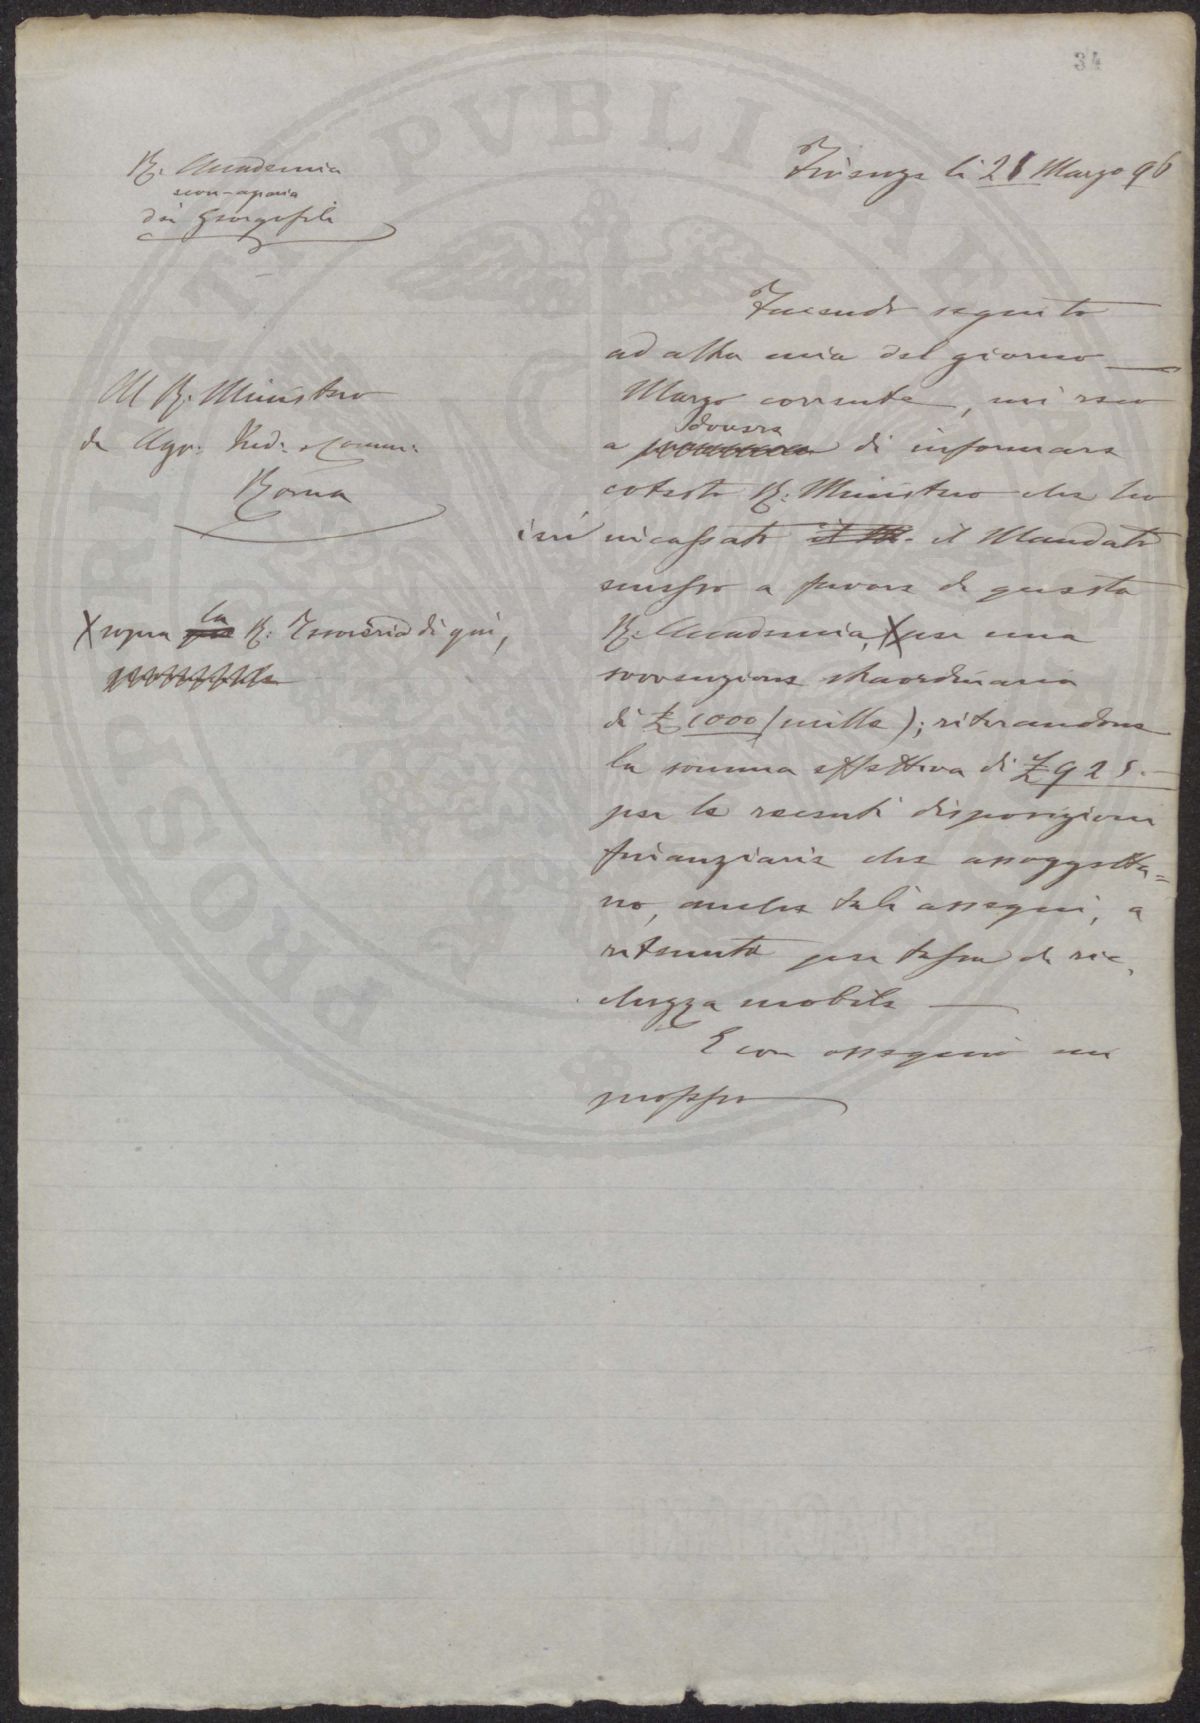 34
R. Accademia
econ-agraria
dei Georgofili
Firenze li 21 Marzo 96
Al R. Ministero
di Agr: Ind: e Comm:
Roma
Facendo seguito
ad altra mia del giorno
Marzo corrente, mi reco
a dovere di informare
cotesto R: Ministero che ho
ieri incassato il M. il Mandato
emesso a favore di questa
R. Accademia, X per una
X sopra la R: Tesoreria di qui,
sovvenzione straordinaria
di £ 1000 (mille); ritirandone
la somma effettiva di £ 925.—
per le recenti disposizioni
finanziarie che assoggetta=
no, anche tali assegni, a
ritenuta per tassa di ric
chezza mobile —
E con ossequio mi
professo
PROSPERITATI PVBLICAE